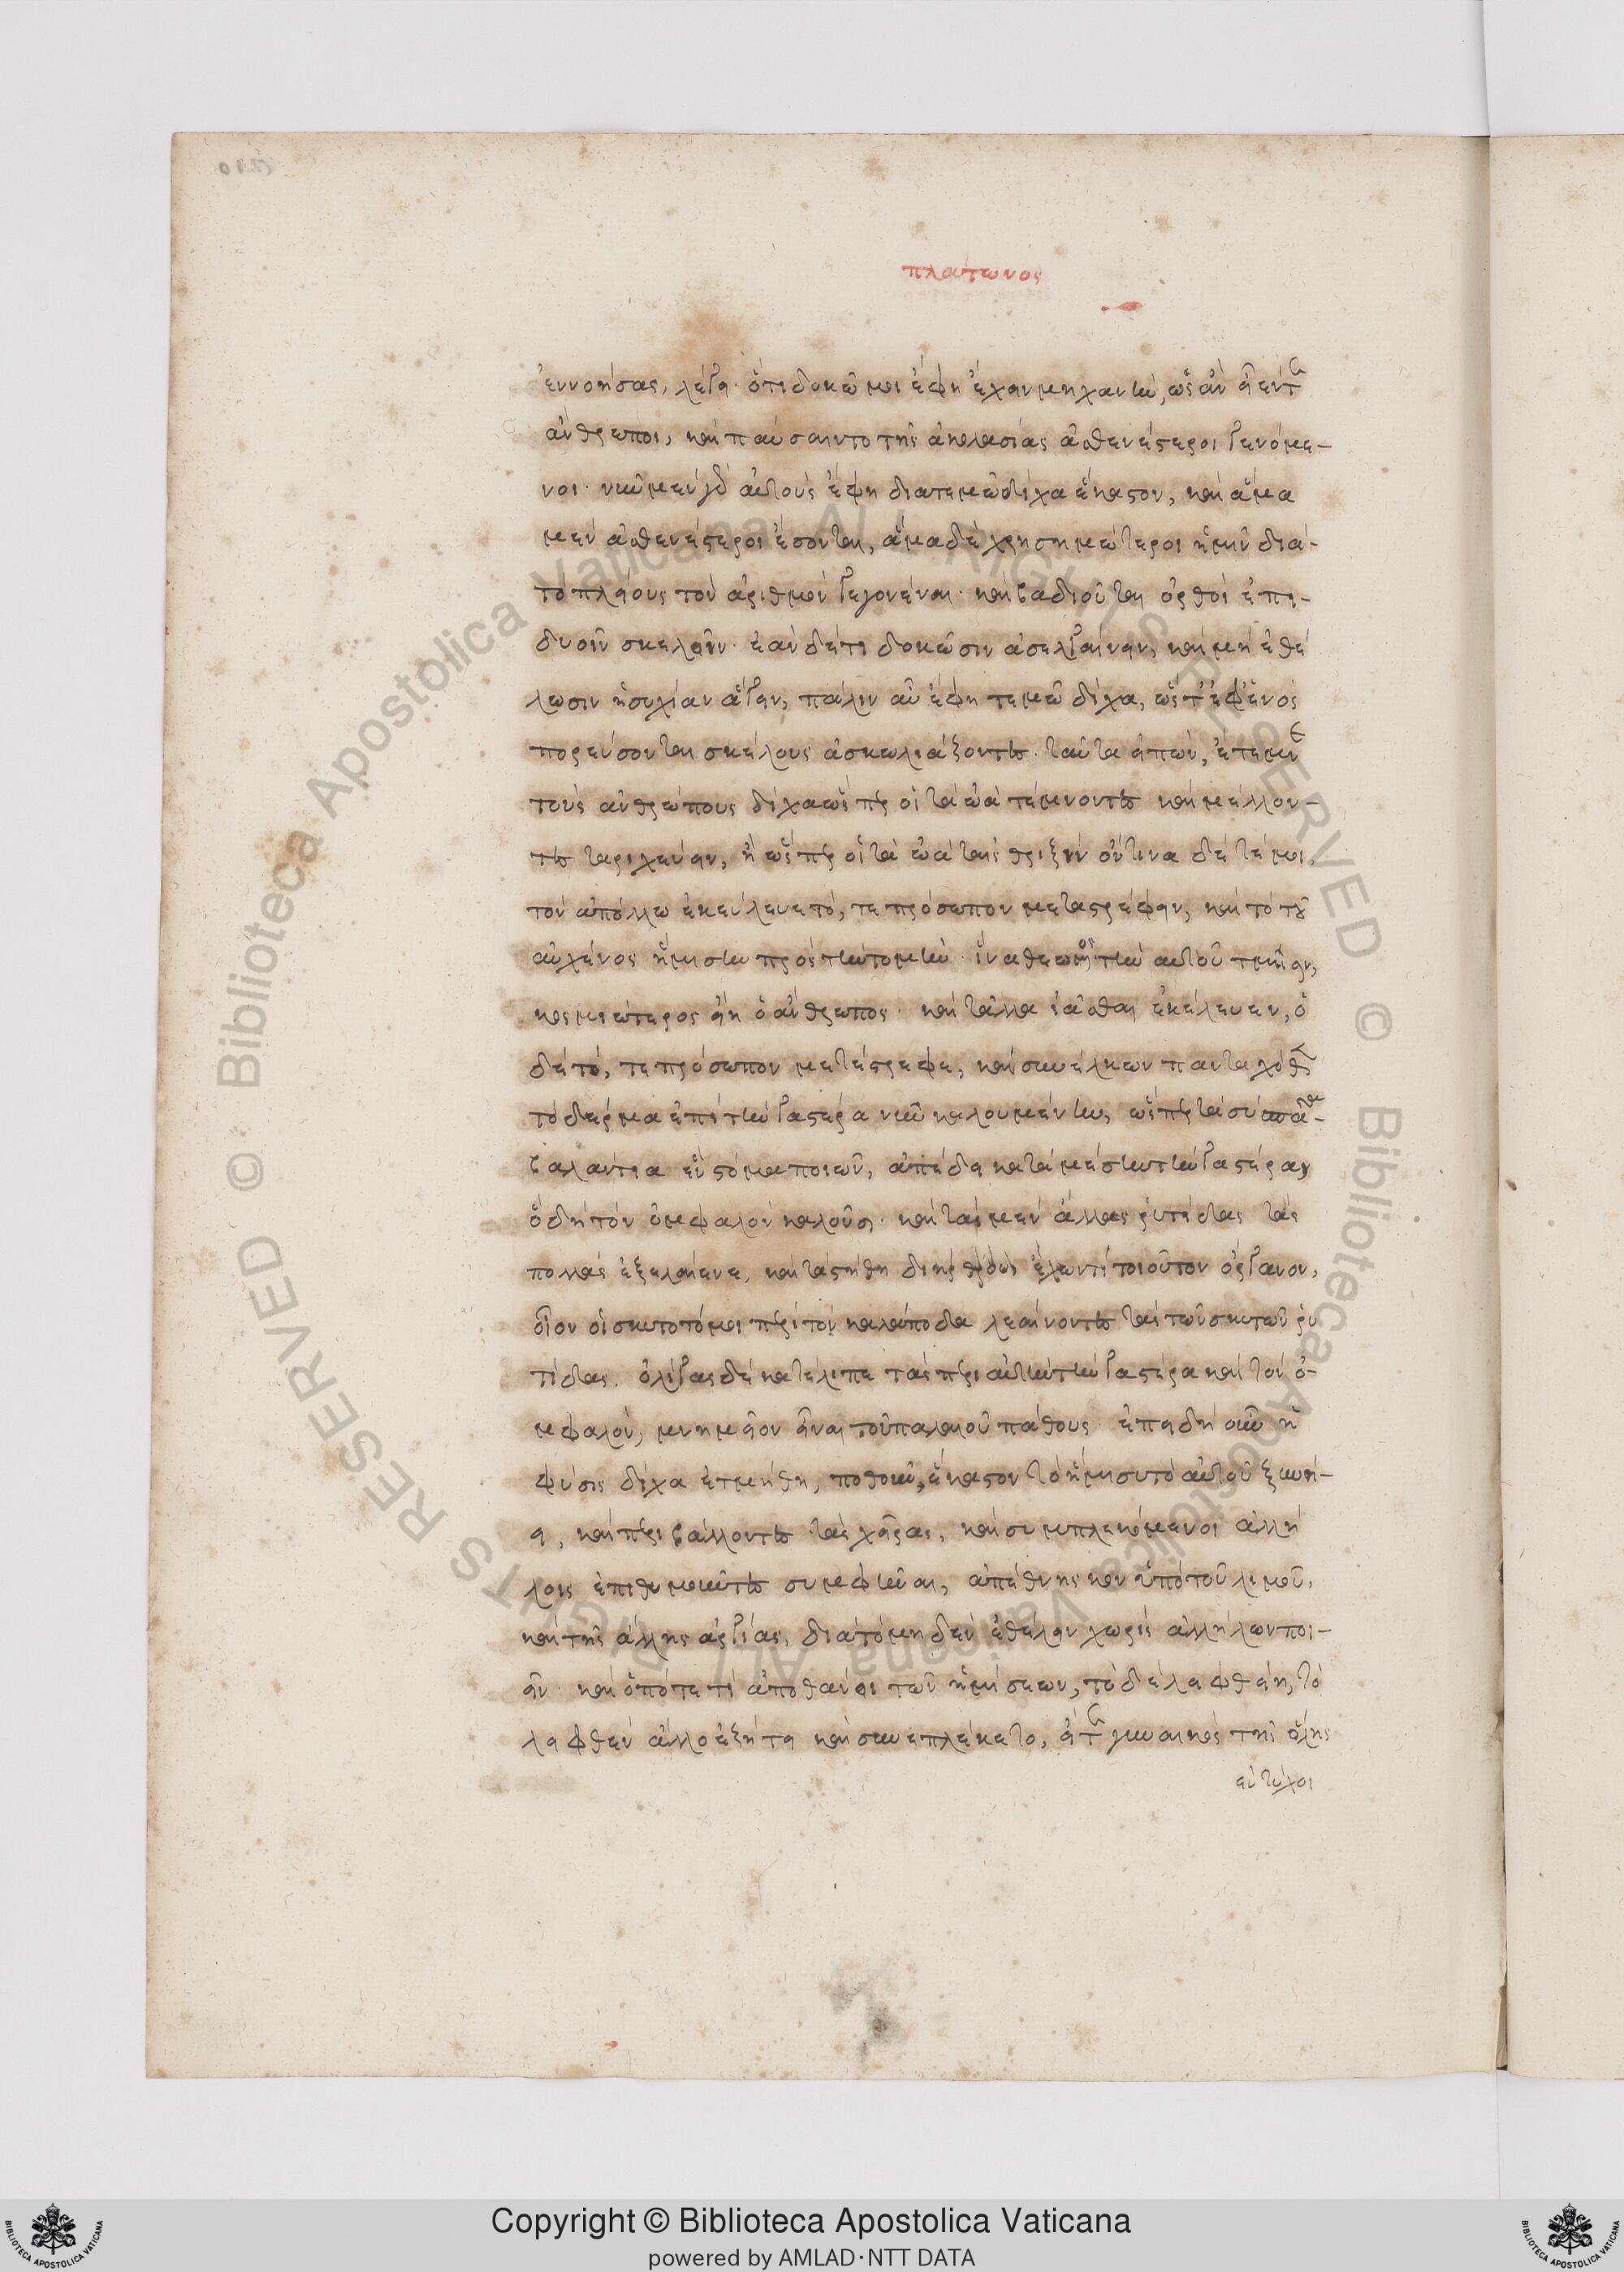 πλάτωνος
ἐννοήσας, λέγει· ὅτι δοκῶ μοι ἔφη ἔχειν μηχανὴν, ὡς ἂν εἶεν τε
ἄνθρωποι, καὶ παύσαιντο τῆς ἀκολασίας ἀσθενέστεροι γενόμε-
νοι· νῦν μὲν γὰρ αὐτοὺς ἔφη διατεμῶ δίχα ἕκαστον, καὶ ἅμα
μὲν ἀσθενέστεροι ἔσονται, ἅμα δὲ χρησιμώτεροι ἡμῖν διὰ-
τὸ πλείους τὸν ἀριθμὸν γεγονέναι· καὶ βαδιοῦνται ὀρθοὶ ἐπι-
δυοῖν σκελοῖν· ἐὰν δέ τι δοκῶσιν ἀσελγαίνειν, καὶ μὴ ἐθέ
λωσιν ἡσυχίαν ἄγειν, πάλιν αὖ ἔφη τεμῶ δίχα, ὥστ' ἐφ' ἑνὸς
πορεύσονται σκέλους ἀσκωλιάζοντες. ταῦτα εἰπὼν, ἔτεμνε
τοὺς ἀνθρώπους δίχα ὥσπερ οἱ τὰ ὠὰ τέμνοντες καὶ μέλλον-
τες ταριχεύειν, ἢ ὥσπερ οἱ τὰ ὠὰ ταῖς θριξίν ὅντινα δὲ τέμοι,
τὸν ἀπόλλω ἐκέλευε τό, τε πρόσωπον μεταστρέφειν, καὶ τὸ τοῦ
αὐχένος ἥμισυ πρὸς τὴν τομὴν· ἵνα θεώμενος τὴν αὐτοῦ τμῆσιν,
κοσμιώτερος εἴη ὁ ἄνθρωπος· καὶ τἆλλα ἰᾶσθαι ἐκέλευεν, ὁ
δὲ τό, τε πρόσωπον μετέστρεφε, καὶ συνέλκων πανταχόθεν
τὸ δέρμα ἐπὶ τὴν γαστέρα νῦν καλουμένην, ὥσπερ τὰ σύσπαστα-
βαλάντια ἓν στόμα ποιῶν, ἀπέδει κατὰ μέσην τὴν γαστέρα,
ὃ δὴ τὸν ὀμφαλὸν καλοῦσι· καὶ τὰς μὲν ἄλλας ῥυτίδας τὰς
πολλὰς ἐξελέαινε, καὶ τὰ στήθη διήρθρου ἔχων τι τοιοῦτον ὄργανον,
οἷον οἱ σκυτοτόμοι περὶ τὸν καλάποδα λεαίνοντες τὰς τῶν σκυτῶν ῥυ
τίδας. ὀλίγας δὲ κατέλιπε τὰς περὶ αὐτὴν τὴν γαστέρα καὶ τὸν ὀ-
μφαλὸν, μνημεῖον εἶναι τοῦ παλαιοῦ πάθους· ἐπειδὴ οὖν ἡ
φύσις δίχα ἐτμήθη, ποθοῦν, ἕκαστον τὸ ἥμισυ τὸ αὐτοῦ ξυνῄ-
ει, καὶ περιβάλλοντες τὰς χεῖρας, καὶ συμπλεκόμενοι ἀλλή
λοις ἐπιθυμοῦντες συμφῦναι, ἀπέθνησκον ὑπὸ τοῦ λιμοῦ,
καὶ τῆς ἄλλης ἀργίας, διὰ τὸ μηδὲν ἐθέλειν χωρὶς ἀλλήλων ποι-
εῖν· καὶ ὁπότε τι ἀποθάνοι τῶν ἡμίσεων, τὸ δὲ λειφθείη, τὸ
λειφθὲν ἄλλο ἐζήτει καὶ συνεπλέκετο, εἴτε γυναικὸς τῆς ὅλης
ἐντύχοι
Copyright © Biblioteca Apostolica Vaticana
powered by AMLAD·NTT DATA
© Biblioteca Apostolica Vaticana ALL RIGHTS RESERVED